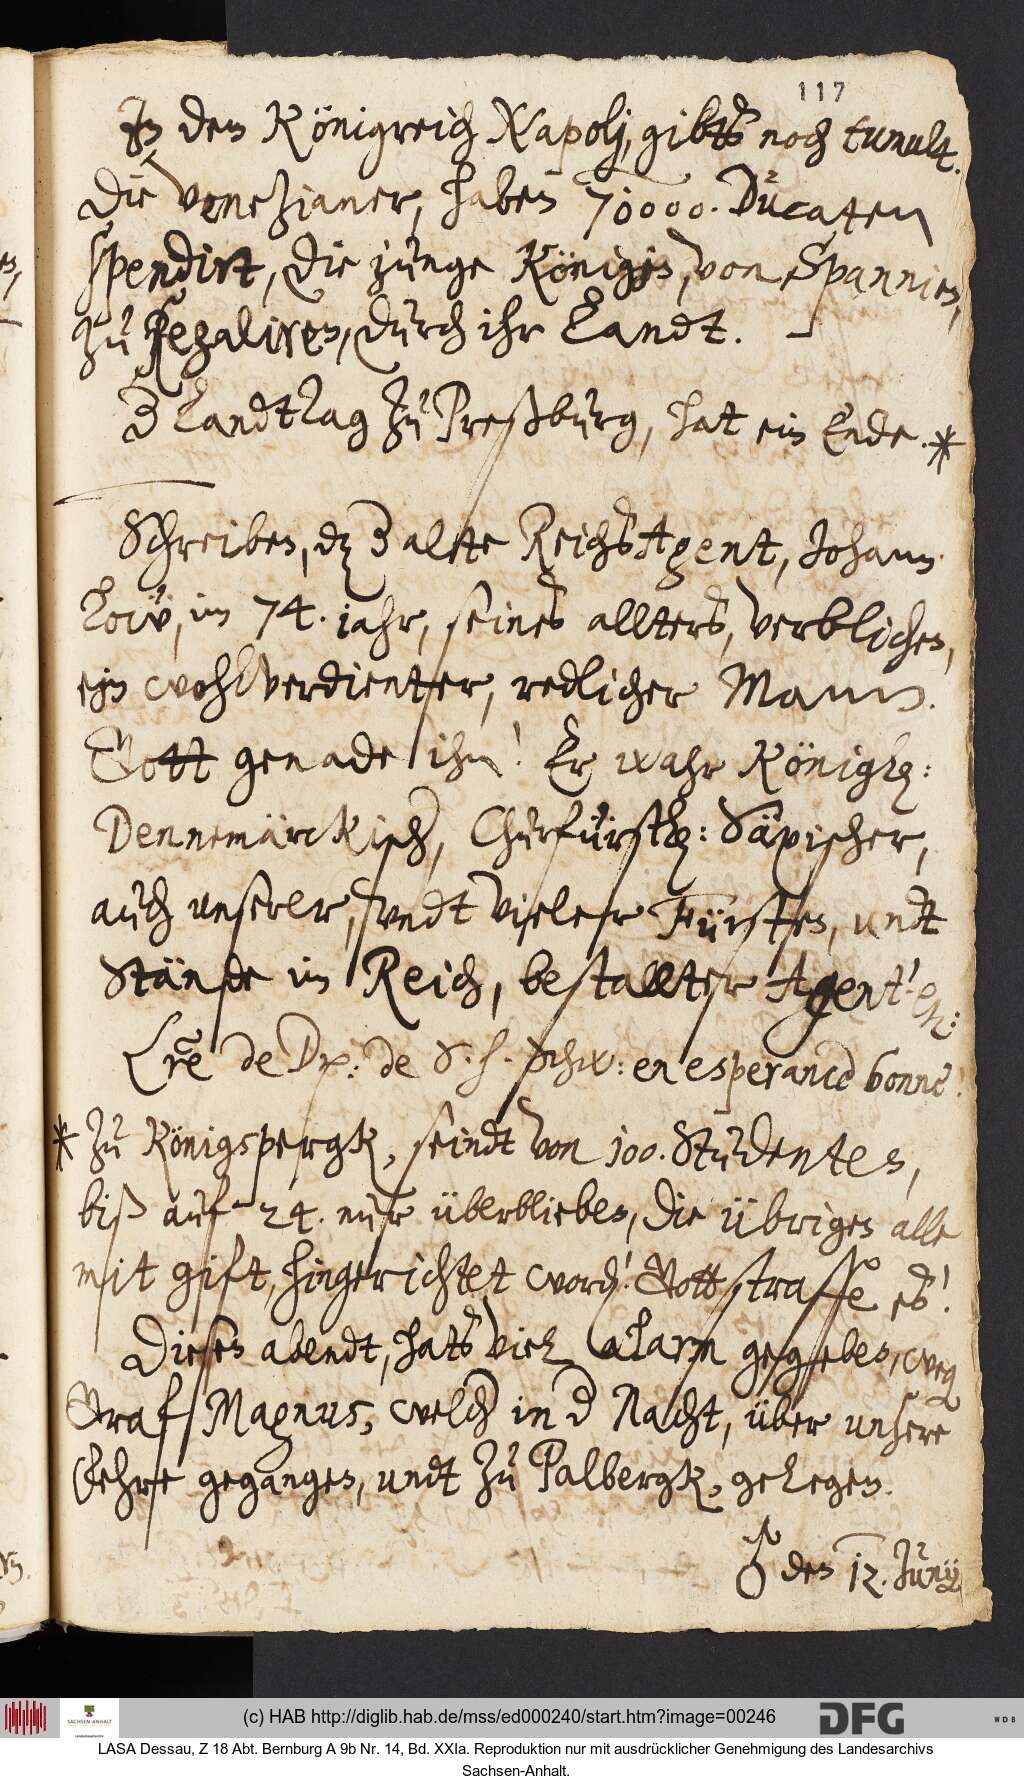 117
In dem Königreich Napolj, gibts noch tumult.
Die Venezianer, haben 70000. Ducaten
spendirt, die junge Königin, von Spannien,
zu Regaliren, durch ihr Landt.
D Landtag zu Preßburg, hat ein Ende. *
Schreiben, dz d alte ReichsAgent, Johann
Löw, im 74. jahr, seines allters, verblichen,
ein wohlverdienter, redlicher Mann.
Gott genade ihm! Er wahr Königl:
Dennemärckisch, Churfürstl: Säxischer,
auch unserer, undt vieler Fürsten, undt
Stände im Reich, bestallter Agent.
Lre de de S. en esperance bonne!
* Zu Königspergk, seindt von 100. Studenten,
biß auf 24. nur überblieben, die übrigen alle
mit gift, hingerichtet word! Gott straffe es!
Diesen abendt, hats viel alarm gegeben, weg
Graf Magnus, welch in d Nacht, über unsere
Fehre gegangen, undt zu Palbergk, gelegen.
♂ den 12. Junij
(c) HAB http://diglib.hab.de/mss/ed000240/start.htm?image=00246
SACHSEN-ANHALT
DFG
WDB
LASA Dessau, Z 18 Abt. Bernburg A 9b Nr. 14, Bd. XXIa. Reproduktion nur mit ausdrücklicher Genehmigung des Landesarchivs
Sachsen-Anhalt.